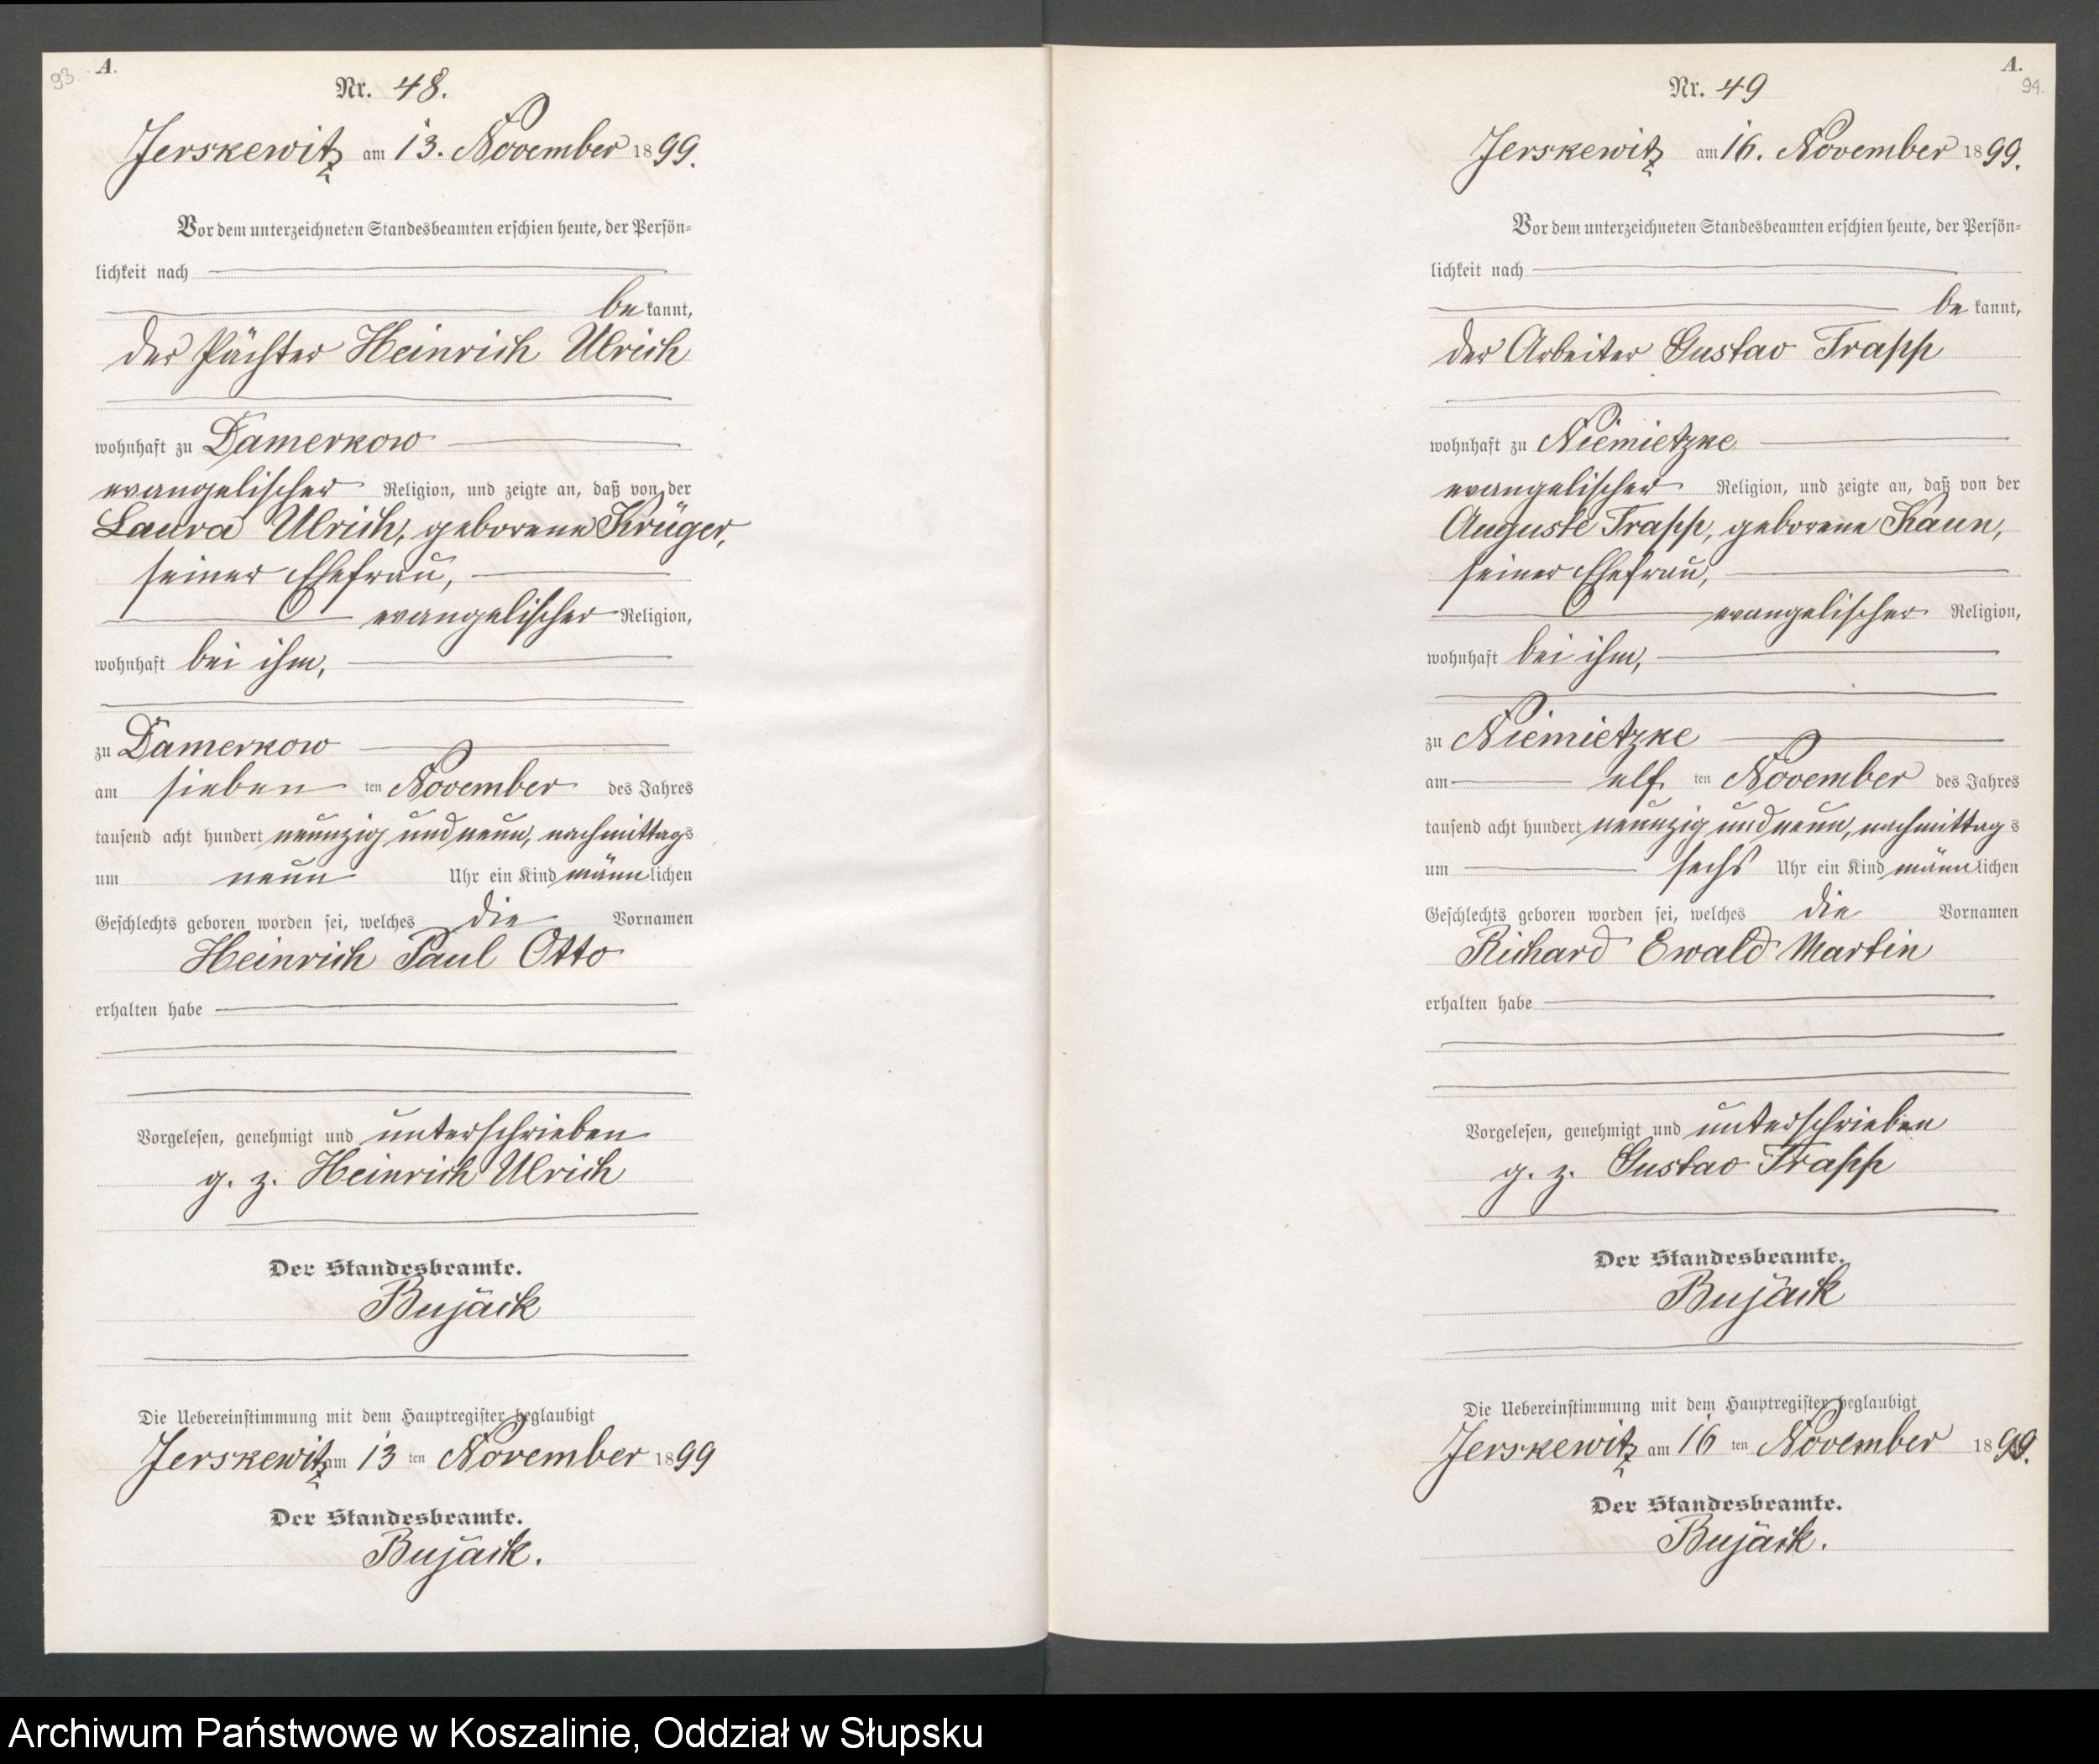 93.
A.
Nr. 48.
Jerskewitz am 13. November 1899.
Vor dem unterzeichneten Standesbeamten erschien heute, der Persön-
lichkeit nach
be kannt,
der Pächter Heinrich Ulrich
wohnhaft zu Damerkow
evangelischer Religion, und zeigte an, daß von der
Laura Ulrich, geborene Krüger,
seiner Ehefrau,
evangelischer Religion,
wohnhaft bei ihm,
zu Damerkow
am sieben ten November des Jahres
tausend acht hundert neunzig und neun, nachmittags
um neun Uhr ein Kind männlichen
Geschlechts geboren worden sei, welches die Vornamen
Heinrich Paul Otto
erhalten habe
Vorgelesen, genehmigt und unterschrieben
g. z. Heinrich Ulrich
Der Standesbeamte.
Bujack
Die Uebereinstimmung mit dem Hauptregister beglaubigt
Jerskewitz am 13 ten November 1899
Der Standesbeamte.
Bujack.
A.
94.
Nr. 49
Jerskewitz am 16. November 1899.
Vor dem unterzeichneten Standesbeamten erschien heute, der Persön-
lichkeit nach
be kannt,
der Arbeiter Gustav Trapp
wohnhaft zu Niemietzke
evangelischer Religion, und zeigte an, daß von der
Auguste Trapp, geborene Kaun,
seiner Ehefrau,
evangelischer Religion,
wohnhaft bei ihm,
zu Niemietzke
am elf ten November des Jahres
tausend acht hundert neunzig und neun, nachmittags
um sechs Uhr ein Kind männlichen
Geschlechts geboren worden sei, welches die Vornamen
Richard Ewald Martin
erhalten habe
Vorgelesen, genehmigt und unterschrieben
g. z. Gustav Trapp
Der Standesbeamte.
Bujack
Die Uebereinstimmung mit dem Hauptregister beglaubigt
Jerskewitz am 16 ten November 1899.
Der Standesbeamte.
Bujack.
Archiwum Państwowe w Koszalinie, Oddział w Słupsku